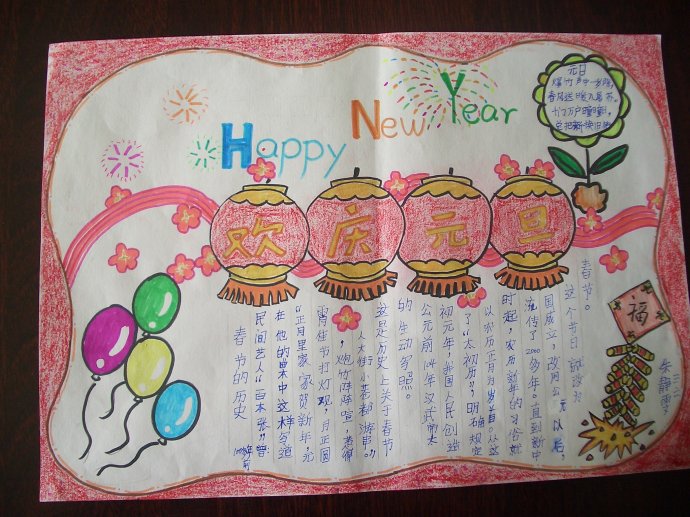 Happy New Year
欢庆元旦
元日
爆竹声中一岁除，
春风送暖入屠苏。
千门万户曈曈日，
总把新桃换旧符
福
春节的历史
民间艺人“百本张”曾
在他的曲本中这样写道
“正月里家家贺新年，元
宵佳节打灯观，月正圆
这是历史上关于春节
的生动写照。
公元前104年汉武帝太
初元年，我国人民创造
了“太初历”，明确规定
以农历正月为岁首。从这
时起，农历新年的习俗就
流传了2000多年。一直到新中
国成立，改用公元以后，
这个节日就改为
春节。